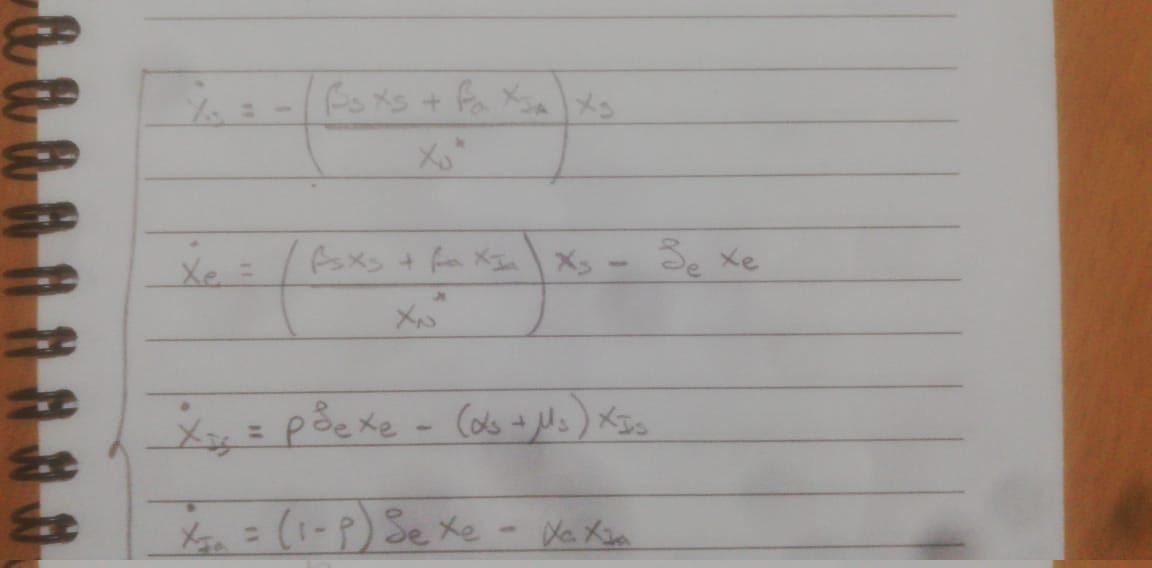 ẋ_s = - ( (β_s x_s + β_a x_Ia) / x_N* ) x_s
ẋ_e = ( (β_s x_s + β_a x_Ia) / x_N* ) x_s - δ_e x_e
ẋ_Is = ρ δ_e x_e - (α_s + μ_s) x_Is
ẋ_Ia = (1-ρ) δ_e x_e - α_a x_Ia